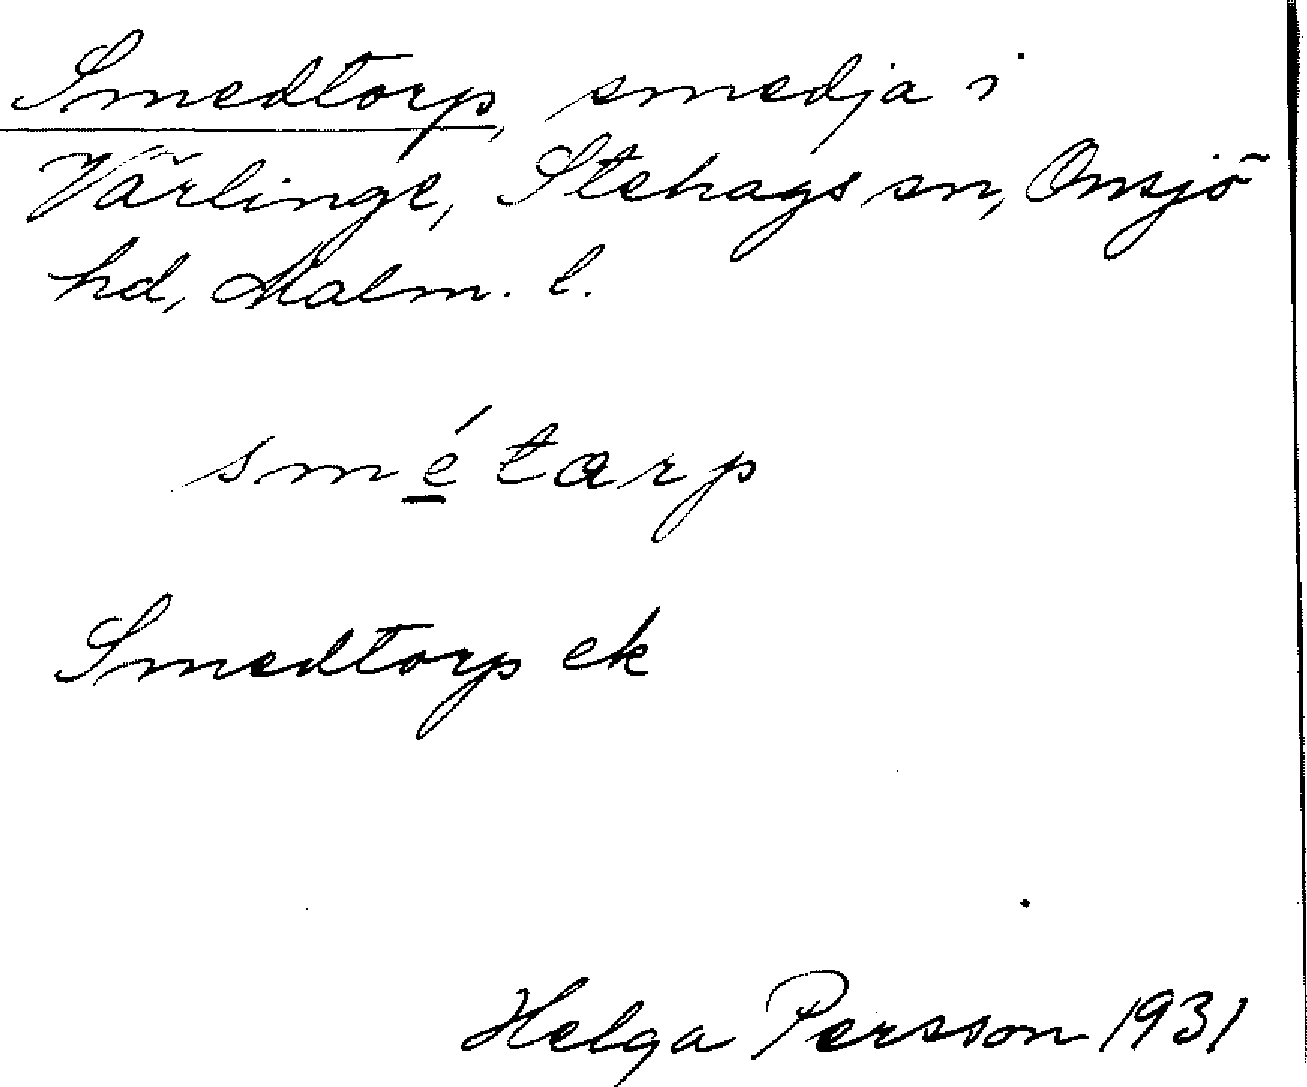 Smedtorp, smedja i
Värlinge, Stehags sn, Onsjö
hd, Malm. l.
smétarp
Smedtorp ek
Helga Persson 1931